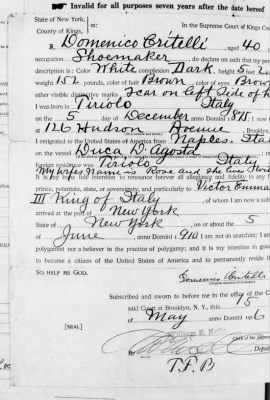 Invalid for all purposes seven years after the date hereof
State of New York,
County of Kings,
In the Supreme Court of Kings County
I, Domenico Critelli, aged 40
occupation Shoemaker, do declare on oath that my personal
Color White complexion Dark, height 5
weight 152 pounds, color of hair Brown color of eyes Brown
other visible distinctive marks Scar on left side of
I was born in Tiriolo Italy
on the 5 day of December anno Domini 1875
at 126 Hudson Avenue, Brooklyn,
emigrated to the United States of America from Naples, Italy
on the vessel Duca D'Aosta
foreign residence was Tiriolo Italy
My wifes Name is Rose and she lives
It is my bona fide intention to renounce forever all allegiance and fidelity to any
prince, potentate, state, or sovereignty, and particularly to Victor Emma
III King of Italy, of whom I am now a subject
arrived at the port of New York
State of New York, on or about the 5
of June, anno Domini 1910; I am not an anarchist; I am
polygamist nor a believer in the practice of polygamy; and it is my intention in good
to become a citizen of the United States of America and to permanently reside
SO HELP ME GOD.
Domenico Critelli
Subscribed and sworn to before me in the office of the
said Court at Brooklyn, N. Y., this 15
May anno Domini 1916
[SEAL.]
William E. Kelly
Clerk of the
Deputy
T.F.B